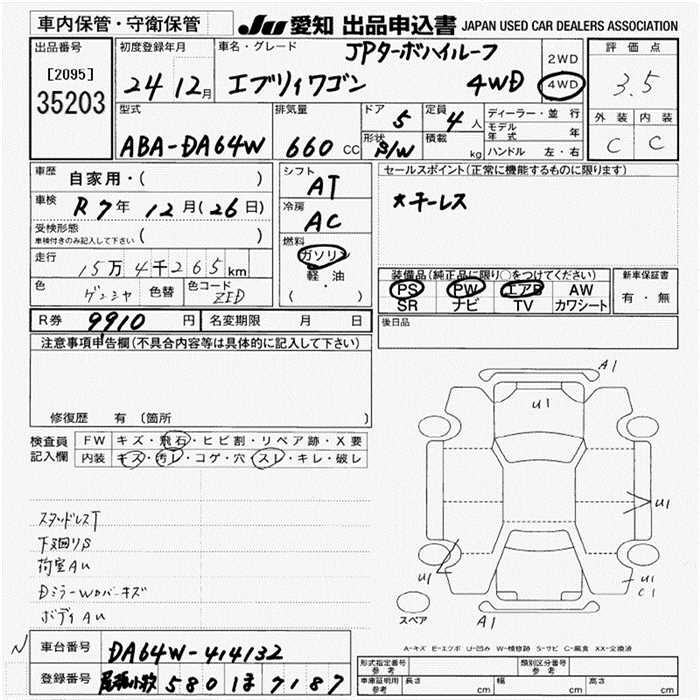 車内保管・守衛保管
JU 愛知 出品申込書 JAPAN USED CAR DEALERS ASSOCIATION
出品番号
[2095]
35203
初度登録年月
24 12月
車名・グレード
JPターボハイルーフ
エブリィワゴン 4WD
2WD
4WD
評価点
3.5
外装 内装
C C
型式
ABA-DA64W
排気量
660 CC
ドア 5
形状 S/W
定員 4人
積載 kg
ディーラー・並行
モデル年式 年
ハンドル 左・右
車歴 自家用・( )
車検 R7年 12月(26日)
受検形態
車検付きのみ記入して下さい ( )
走行 15万4千265km
色 ゲンシャ 色替 色コード ZED
シフト AT
冷房 AC
燃料
ガソリン
軽・油
( )
セールスポイント(正常に機能するものに限ります)
*キーレス
装備品(純正品に限り○をつけてください)
PS PW エアB AW
SR ナビ TV カワシート
新車保証書
有・無
R券 9910円 名変期限 月 日
後日品
注意事項申告欄(不具合内容等は具体的に記入して下さい)
修復歴 有(箇所 )
検査員記入欄
FW キズ・飛石・ヒビ割・リペア跡・X要
内装 キズ・汚レ・コゲ・穴・スレ・キレ・破レ
スタッドレスT
下廻りS
荷室AU
DミラーWカバーキズ
ボディAU
A1
U1
U1
U1
U1
C1
A1
スペア
A-キズ E-エクボ U-凹み W-補修跡 S-サビ C-腐食 XX-交換済
N
車台番号 DA64W-414132
登録番号 尾張小牧 580 ほ 7187
形式指定番号
参考
類別区分番号
参考
車庫証明用
参考
長さ cm 幅 cm 高さ cm